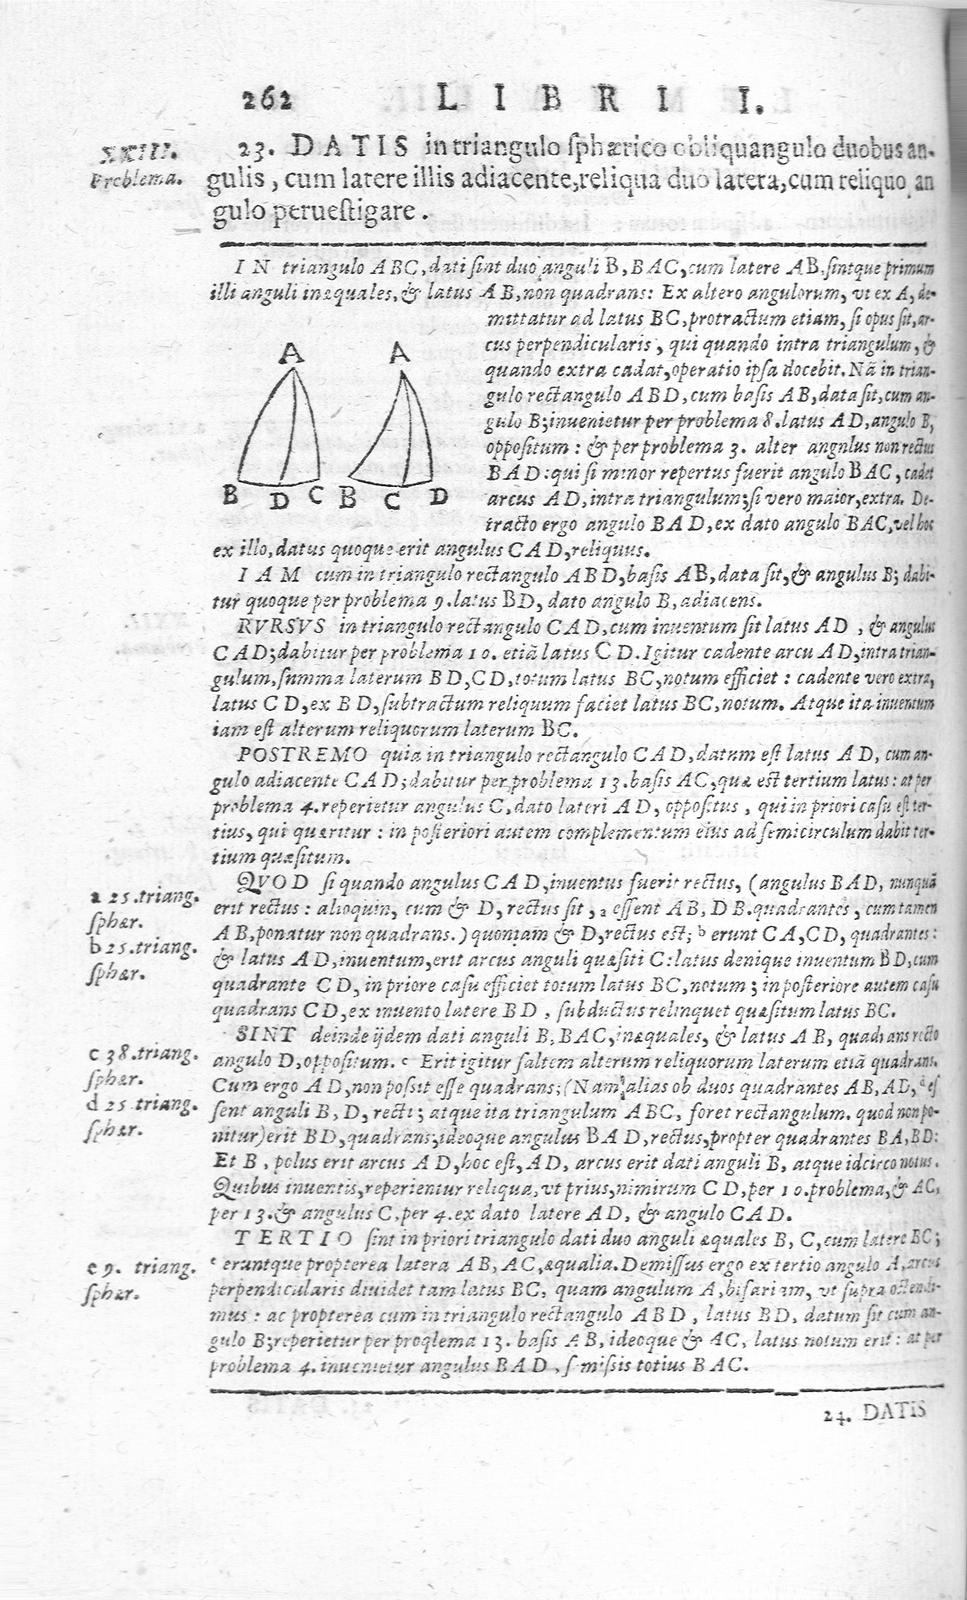 262 LIBRI I.
XXIII.
Problema.
23. DATIS in triangulo ſphærico obliquangulo duobus an-
gulis, cum latere illis adiacente, reliqua duo latera, cum reliquo an
gulo perueſtigare.
IN triangulo ABC, dati ſint duo anguli B, BAC, cum latere AB. ſintque primum
illi anguli inæquales, & latus AB, non quadrans: Ex altero angulorum, vt ex A, de-
mittatur ad latus BC, protractum etiam, ſi opus ſit, ar-
cus perpendicularis, qui quando intra triangulum, &
quando extra cadat, operatio ipſa docebit. Nã in trian-
gulo rectangulo ABD, cum baſis AB, data ſit, cum an-
gulo B; inuenietur per problema 8. latus AD, angulo B,
oppoſitum: & per problema 3. alter angnlus non rectus
BAD: qui ſi minor repertus fuerit angulo BAC, cadet
arcus AD, intra triangulum; ſi vero maior, extra. De-
tracto ergo angulo BAD, ex dato angulo BAC, vel hoc
A A
B D C B C D
ex illo, datus quoque erit angulus CAD, reliquus.
IAM cum in triangulo rectangulo ABD, baſis AB, data ſit, & angulus B; dabi-
tur quoque per problema 9. latus BD, dato angulo B, adiacens.
RVRSVS in triangulo rectangulo CAD, cum inuentum ſit latus AD, & angulus
CAD; dabitur per problema 10. etiã latus CD. Igitur cadente arcu AD, intra trian-
gulum, ſumma laterum BD, CD, totum latus BC, notum efficiet: cadente vero extra,
latus CD, ex BD, ſubtractum reliquum faciet latus BC, notum. Atque ita inuentum
iam eſt alterum reliquorum laterum BC.
POSTREMO quia in triangulo rectangulo CAD, datum eſt latus AD, cum an-
gulo adiacente CAD; dabitur per problema 13. baſis AC, quæ est tertium latus: at per
problema 4. reperietur angulus C, dato lateri AD, oppoſitus, qui in priori caſu eſt ter-
tius, qui quæritur: in poſteriori autem complementum eius ad ſemicirculum dabit ter-
tium quæſitum.
QVOD ſi quando angulus CAD, inuentus fuerit rectus, (angulus BAD, nunquã
erit rectus: alioquin, cum & D, rectus ſit, a eſſent AB, DB. quadrantes, cum tamen
AB, ponatur non quadrans.) quoniam & D, rectus est; b erunt CA, CD, quadrantes:
& latus AD, inuentum, erit arcus anguli quæſiti C: latus denique inuentum BD, cum
quadrante CD, in priore caſu efficiet totum latus BC, notum; in poſteriore autem caſu
quadrans CD, ex inuento latere BD, ſubductus relinquet quæſitum latus BC.
a 25. triang.
ſphær.
b 25. triang.
ſphær.
SINT deinde ijdem dati anguli B, BAC, inæquales, & latus AB, quadrans recto
angulo D, oppoſitum. c Erit igitur ſaltem alterum reliquorum laterum etiã quadrans.
Cum ergo AD, non poſſit eſſe quadrans; (Nam alias ob duos quadrantes AB, AD, d eſ
ſent anguli B, D, recti; atque ita triangulum ABC, foret rectangulum. quod non po-
nitur) erit BD, quadrans; ideoque angulus BAD, rectus, propter quadrantes BA, BD:
Et B, polus erit arcus AD, hoc est, AD, arcus erit dati anguli B, atque idcirco notus.
Quibus inuentis, reperientur reliqua, vt prius, nimirum CD, per 10. problema, & AC,
per 13. & angulus C, per 4. ex dato latere AD, & angulo CAD.
c 38. triang.
ſphær.
d 25. triang.
ſphær.
TERTIO ſint in priori triangulo dati duo anguli æquales B, C, cum latere BC;
e eruntque propterea latera AB, AC, æqualia. Demiſſus ergo ex tertio angulo A, arcus
perpendicularis diuidet tam latus BC, quam angulum A, bifariam, vt ſupra oſtendi-
mus: ac propterea cum in triangulo rectangulo ABD, latus BD, datum ſit cum an-
gulo B; reperietur per proqlema 13. baſis AB, ideoque & AC, latus notum erit: at per
problema 4. inuenietur angulus BAD, ſemiſsis totius BAC.
e 9. triang.
ſphær.
24. DATIS